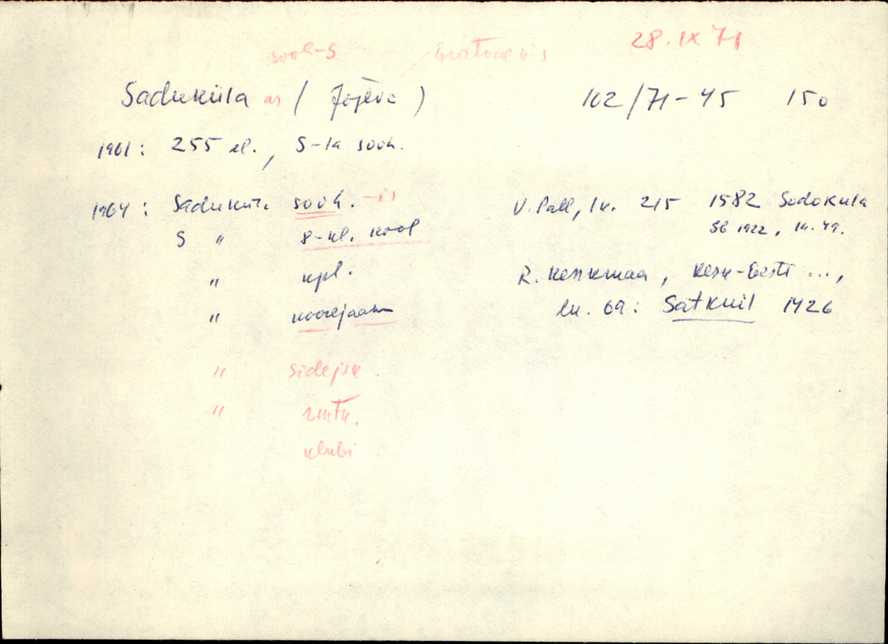 28.IX 71
Saduküla as (Jõgeva) 102/71-45 150
1961: 255 el., S-la sooh.
1964: Saduküla sooh. V. Pall, lk. 215 1582 Sodokula
S " 8-kl. kool SE 1922, lk. 49.
" kpl. R. Kenkmaa, Kesk-Eesti ...,
" noorejaam lk. 69: Satkuil 1426
" sidejsk
" rmtk.
klubi